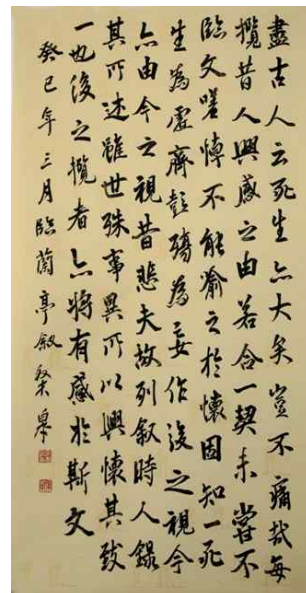 盡古人云死生亦大矣豈不痛哉每
攬昔人興感之由若合一契未嘗不
臨文嗟悼不能喻之於懷固知一死
生為虛齊彭殤為妄作後之視今
亦由今之視昔悲夫故列叙時人錄
其所述雖世殊事異所以興懷其致
一也後之攬者亦將有感於斯文
癸巳年三月臨蘭亭叙